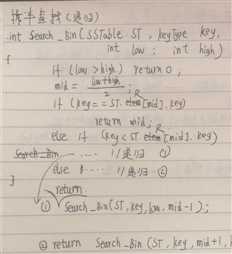 折半查找(递归)
int Search_Bin(SSTable ST, keyType key,
int low, int high)
{
if (low > high) return 0;
mid = low+high / 2 ;
if (key == ST.R[mid].key)
return mid;
else if (key < ST.R[mid].key)
Search_Bin ...... //递归 ①
else ...... //递归 ②
}
return
① Search_Bin(ST, key, low, mid-1);
② return Search_Bin (ST, key, mid+1, h